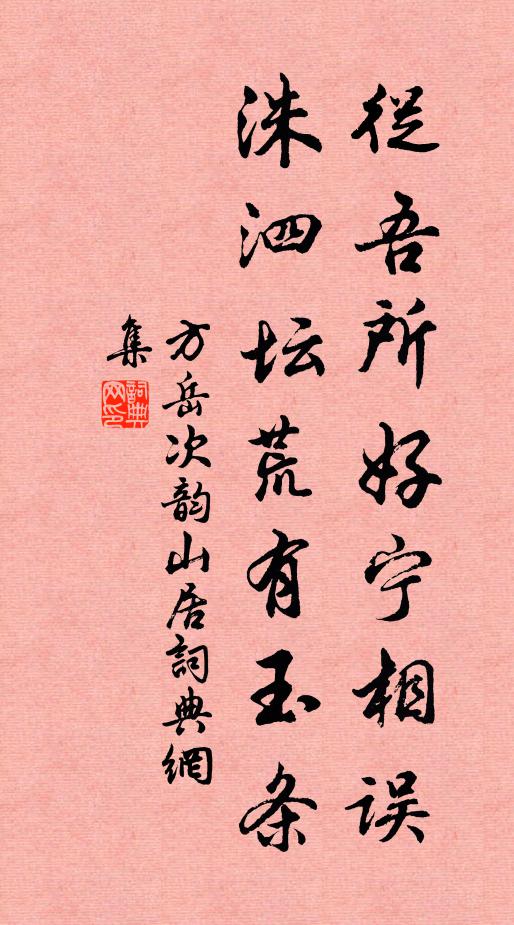 從吾所好宁相误
洙泗坛荒有玉条
方岳次韵山居詞典網
集
詞典
网印